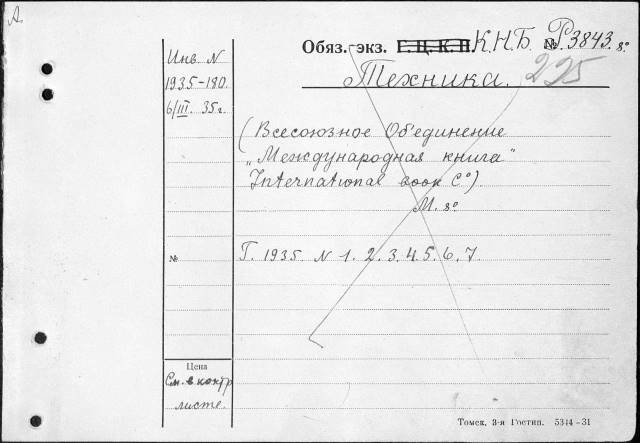 А.
Обяз. экз. Г.Ц.К.П. К.Н.Б. № Р 3843. 8°
Техника. 225
Инв. N
1935-180.
6/III. 35 г.
(Всесоюзное Об'единение
„Международная книга"
International book C°).
М. 8°
№
Г. 1935. N 1. 2. 3. 4. 5. 6. 7.
Цена
См. в контр.
листе.
Томск. 3-я Гостип. 5344-31